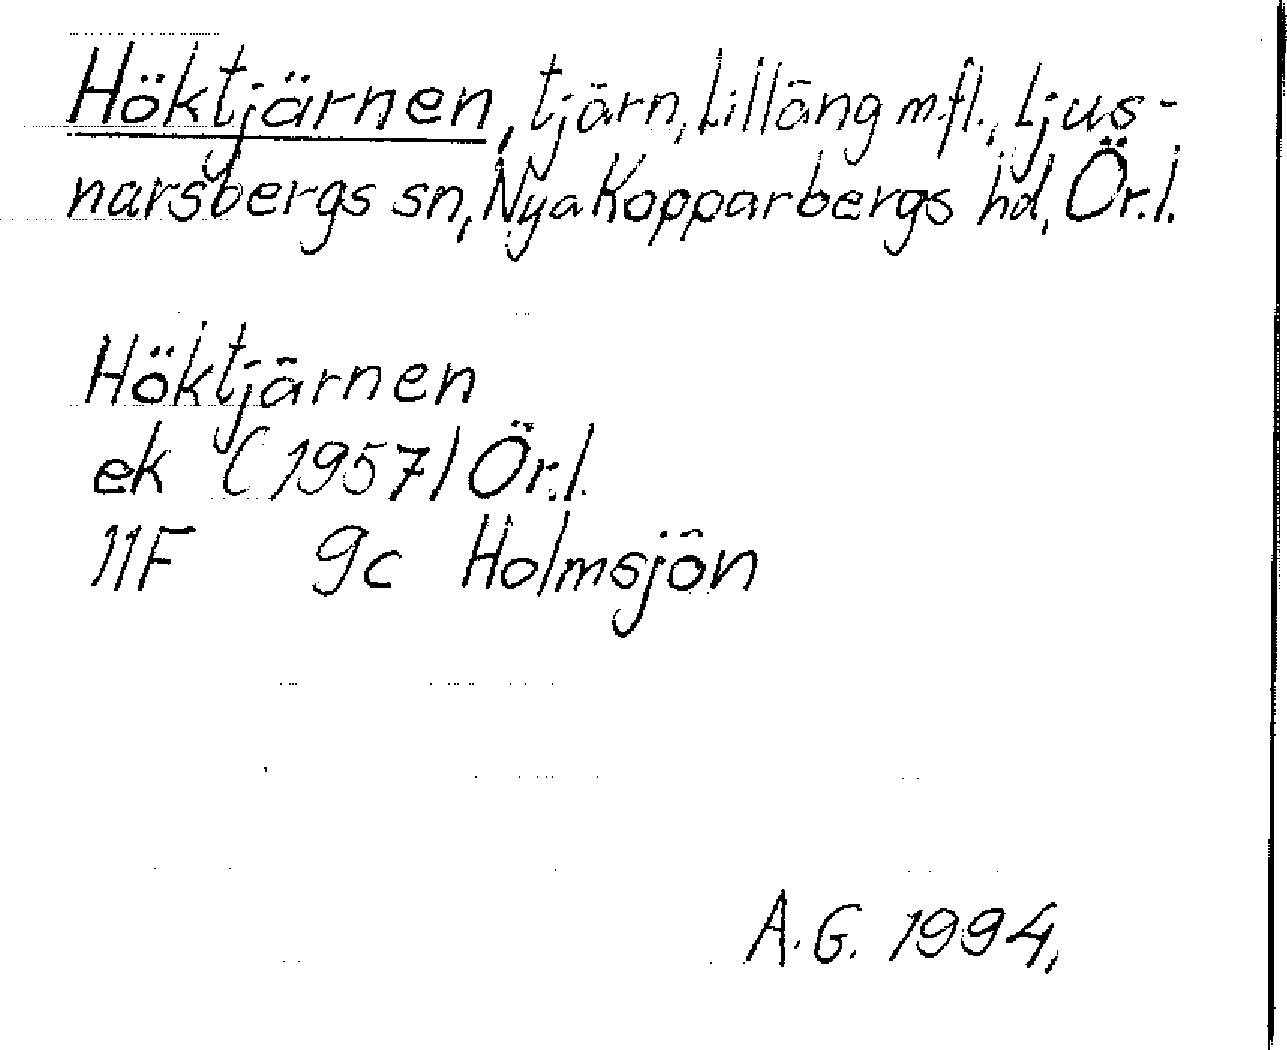 Höktjärnen, tjärn, Lilläng m.fl., Ljus-
narsbergs sn, Nya Kopparbergs hd, Ör.l.
Höktjärnen
ek (1957) Ör.l.
11F 9c Holmsjön
A.G. 1994.